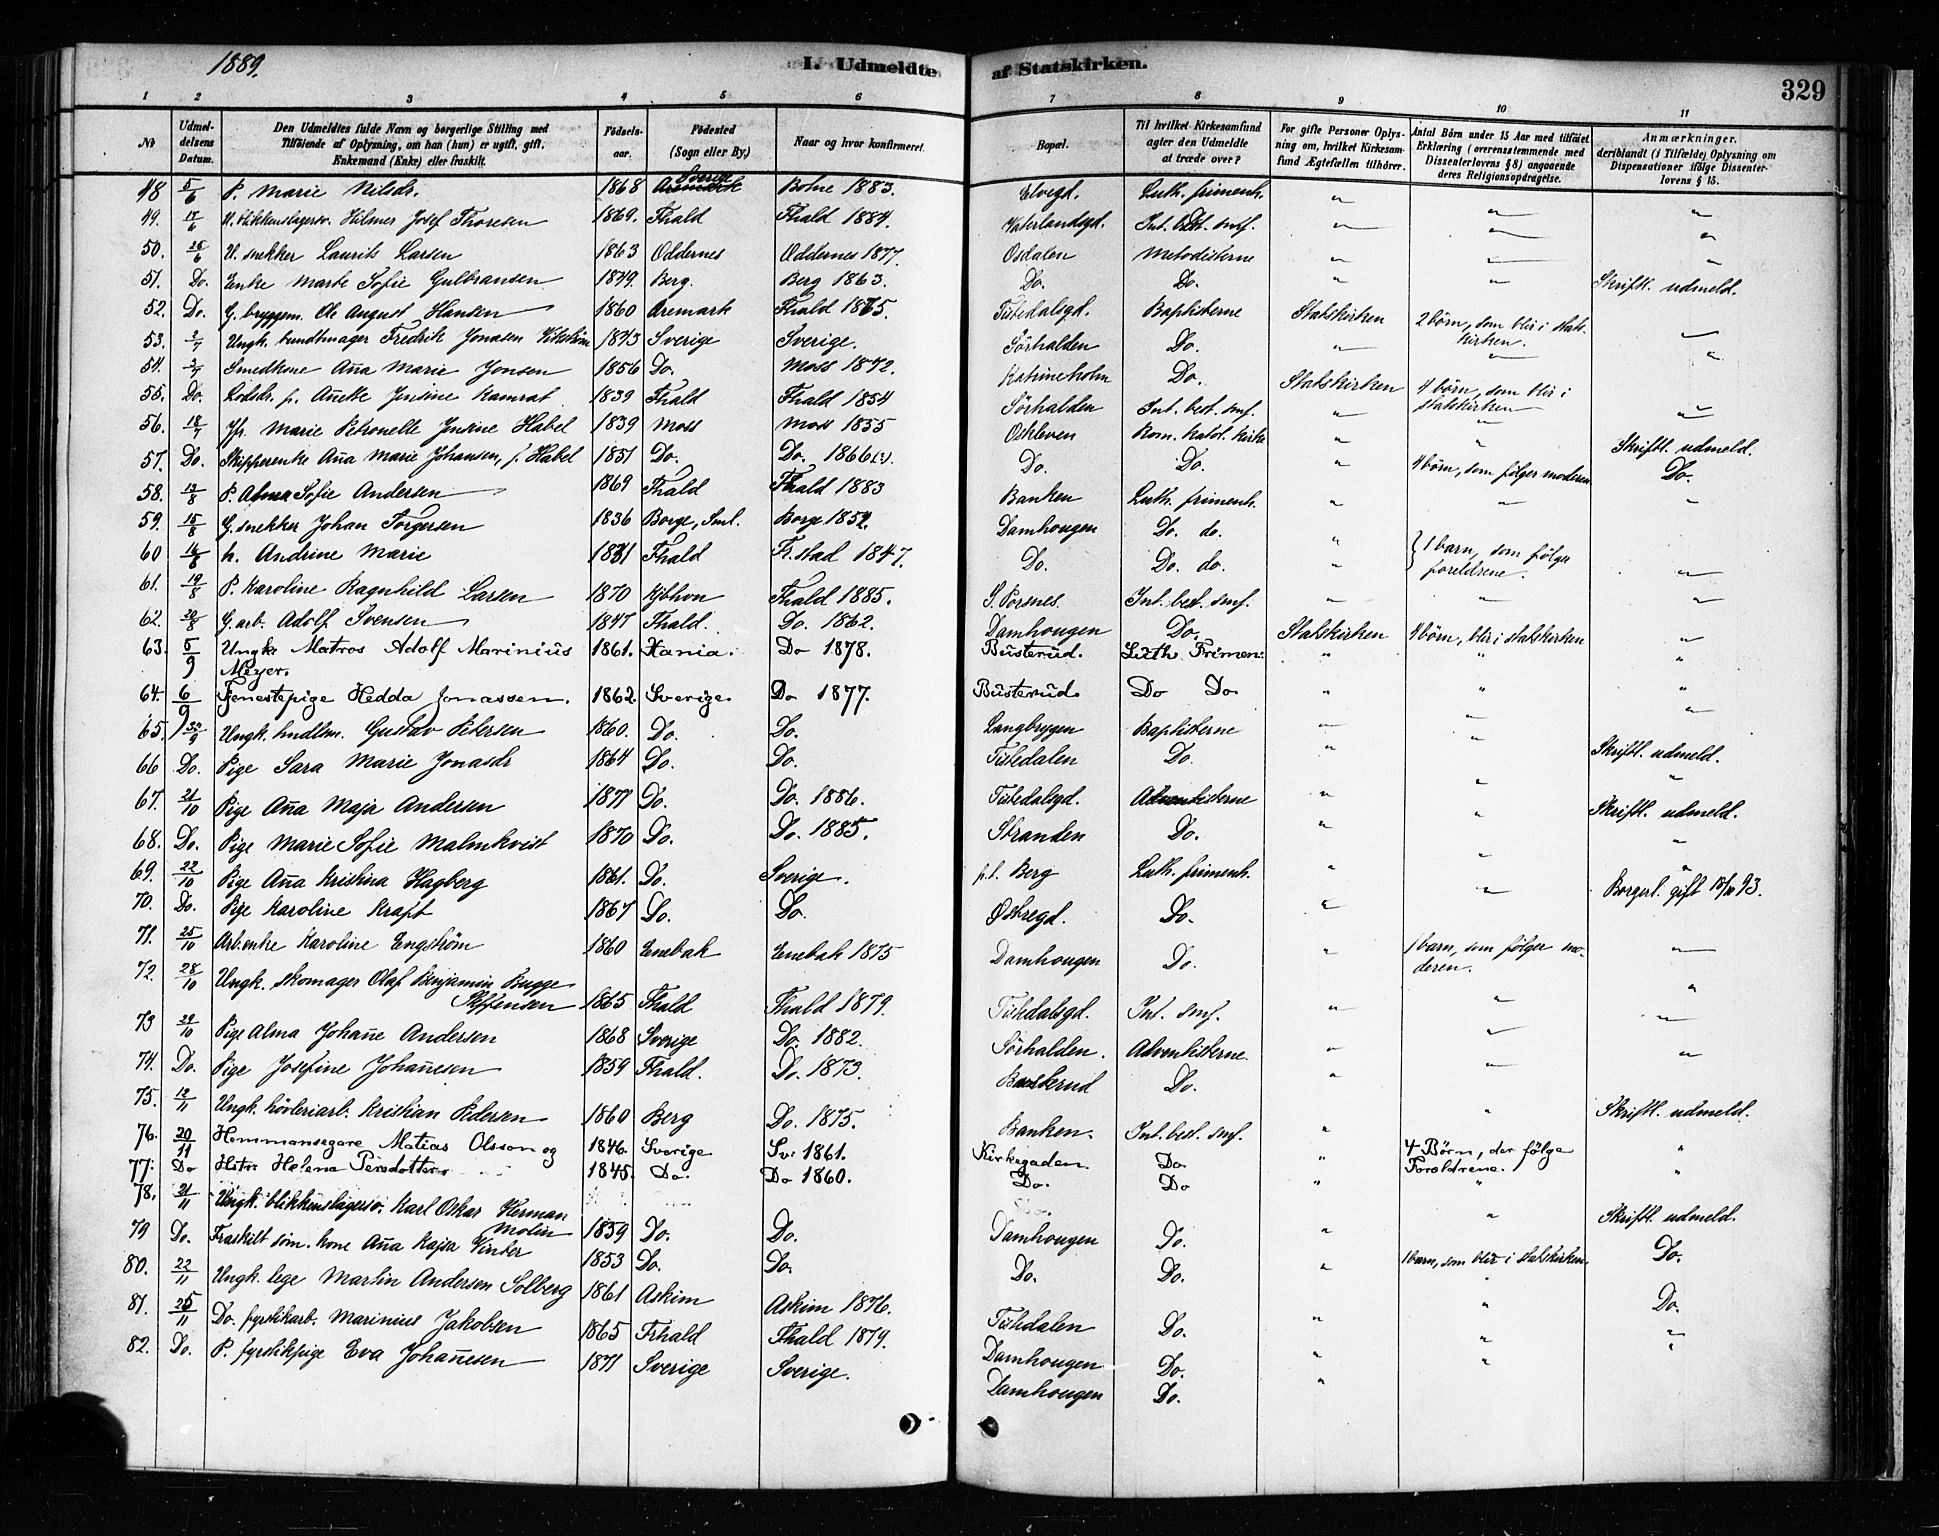 1889.
I. Udmeldte af Statskirken.
329
1 2 3 4 5 6 7 8 9 10 11
No
Udmeldelsens Datum.
Den Udmeldtes fulde Navn og borgerlige Stilling med Tilföiende af Oplysning, om han (hun) er ugift, gift, Enkemand (Enke) eller fraskilt.
Födselsaar.
Födested (Sogn eller By.)
Naar og hvor konfirmeret.
Bopæl.
Til hvilket Kirkesamfund agter den Udmeldte at træde over?
For gifte Personer Oplysning om, hvilket Kirkesamfund Ægtefællen tilhörer.
Antal Börn under 15 Aar med tilföiet Erklæring (overensstemmende med Dissenterlovens § 8) angaaende deres Religionsopdragelse.
Anmærkninger. deriblandt (i Tilfælde) Oplysning om Dispensationer ifölge Dissenterlovens § 15.
48 5/6 P. Marie Nilsdr. 1868 Sverige Bohne 1883. Elvegd. Luth. frimenh. " " "
49. 17/6 U. blikkenslagersv. Hilmer Josef Thoresen 1869. Fhald Fhald 1884. Vaterlandsgd. Int. best. smf. " " "
50. 26/6 U. snekker Laurits Larsen 1863 Oddernes Oddernes 1877. Osdalen Metodisterne " " "
51. Do. Enke Marte Sofie Gulbransen 1849. Berg. Berg 1863. Do. Do. " " Skriftl. udmeld.
52. Do. G. bryggem. Ole August Hansen 1860 Aremark Fhald 1875. Tistedalsgd. Baptisterne Statskirken 2 börn, som blir i statskirken. "
53. 2/7 Ungk. bundtmager Fredrik Jonasen Vikström 1843 Sverige Sverige. Sörhalden Do. " " "
54. 3/7 Smedkone Aña Marie Jonsen 1856 Do. Moss 1872. Katrineholm Do. Statskirken 4 börn, som blir i statskirken
55. Do. Lodsdr. p. Anette Jensine Kamrat 1839 Fhald Fhald 1854 Sörhalden Int. best. smf. " " "
56. 18/7 Jfr. Marie Petronelle Jensine Habel 1839 Moss Moss 1855 Oskleven Rom. katol. kirke " " Skriftl. udmeld.
57. Do. Skipperenke Aña Marie Johansen, f. Habel 1851 Do. Do. 1866(?). Do. Do. " 4 börn, som følger moderen Do.
58. 13/8 P. Alma Sofie Andersen 1869 Fhald Fhald 1883 Banken Luth. frimenh. " " "
59. 15/8 G. snekker Johan Torgersen 1836 Borge, Sml. Borge 1852. Damhougen Do. do. " } 1 barn, som følge foreldrene.
60 16/8 h. Andrine Marie 1831 Fhald Fr.stad 1847. Do. Do. do. " "
61. 19/8 P. Karoline Ragnhild Larsen 1870 Kjbhvn Fhald 1885. S. Porsnes. Int. best. smf. " " "
62. 20/8 G. arb. Adolf Svensen 1847 Fhald. Do. 1862. Damhougen Do. Statskirken 4 börn, blir i statskirken "
63. 5/9 Ungk. Matros Adolf Marinius Meyer. 1861. Xania. Do 1878. Busterud. Luth Frimen: " " "
64. 6/9 Tjenestepige Hedda Jonassen. 1862. Sverige. Do 1877. Busterud. Do Do " " "
65. Ungk. hndlsm. Gustav Petersen 1860. Do. Do. Langbryggen Baptisterne " " "
66 Do. Pige Sara Marie Jonasdr 1864 Do. Do. Tistedalen Do. " " Skriftl. udmeld.
67. 21/10 Pige Aña Maja Andersen 1871 Do. Do. 1886. Tistedalsgd. Adventisterne " " "
68. Do. Pige Marie Sofie Malmkvist 1870 Do. Do. 1885. Stranden Do. " " Skriftl. udmeld.
69. 22/10 Pige Aña Kristina Hagberg 1861. Do. Sverige. p.t. Berg Luth. frimenh. " " "
70. Do. Pige Karoline Kraft 1867 Do. Do. Østregd. Do. " " Borgerl. gift 15/11 93.
71. 25/10 Arb.enke Karoline Engström 1860 Enebak Enebak 1875 Damhougen Do. " 1 barn, som følger moderen. "
72. 28/10 Ungk. skomager Olaf Benjamin Bugge Steffensen 1865 Fhald Fhald 1879. Tistedalsgd. Int. smf. " " "
73 29/10 Pige Alma Johañe Andersen 1868 Sverige Do. 1882. Sörhalden. Adventisterne. " " "
74. Do. Pige Josefine Johañesen 1859 Fhald. Do. 1873. Busterud Do. " " "
75. 12/11 Ungk. hövleriarb. Kristian Pedersen 1860 Berg Do. 1875. Banken. Int. best. smf. " " Skriftl. udmeld.
76. 20/11 Hemmansegare Matias Olsson og 1846. Sverige Sv: 1861. Kirkegaden. Do " 4 Börn, der følge Foreldrene. "
77. Do Hstr Helena Persdotter 1845. Do. Do 1860. Do. Do " " "
78. 21/11 Ungk. blikkenslagersv. Karl Oskar Herman Molin 1859 Do. Do. Damhougen Do. " " Skriftl. udmeld.
79 Do. Fraskilt söm. kone Aña Kajsa Vinter 1853 Do. Do. Do. Do. " 1 barn, som blir i statskirken. Do.
80. 22/11 Ungk. lege Martin Andersen Solberg 1861 Askim Askim 1876. Tistedalen Do. " " Do.
81. 25/11 Do. fyrstikarb. Marinius Jakobsen 1865 Frhald Fhald 1879. Damhougen Do. " " "
82. Do. P. fyrstikpige Eva Johañesen 1871 Sverige Sverige. Damhougen Do. " " "